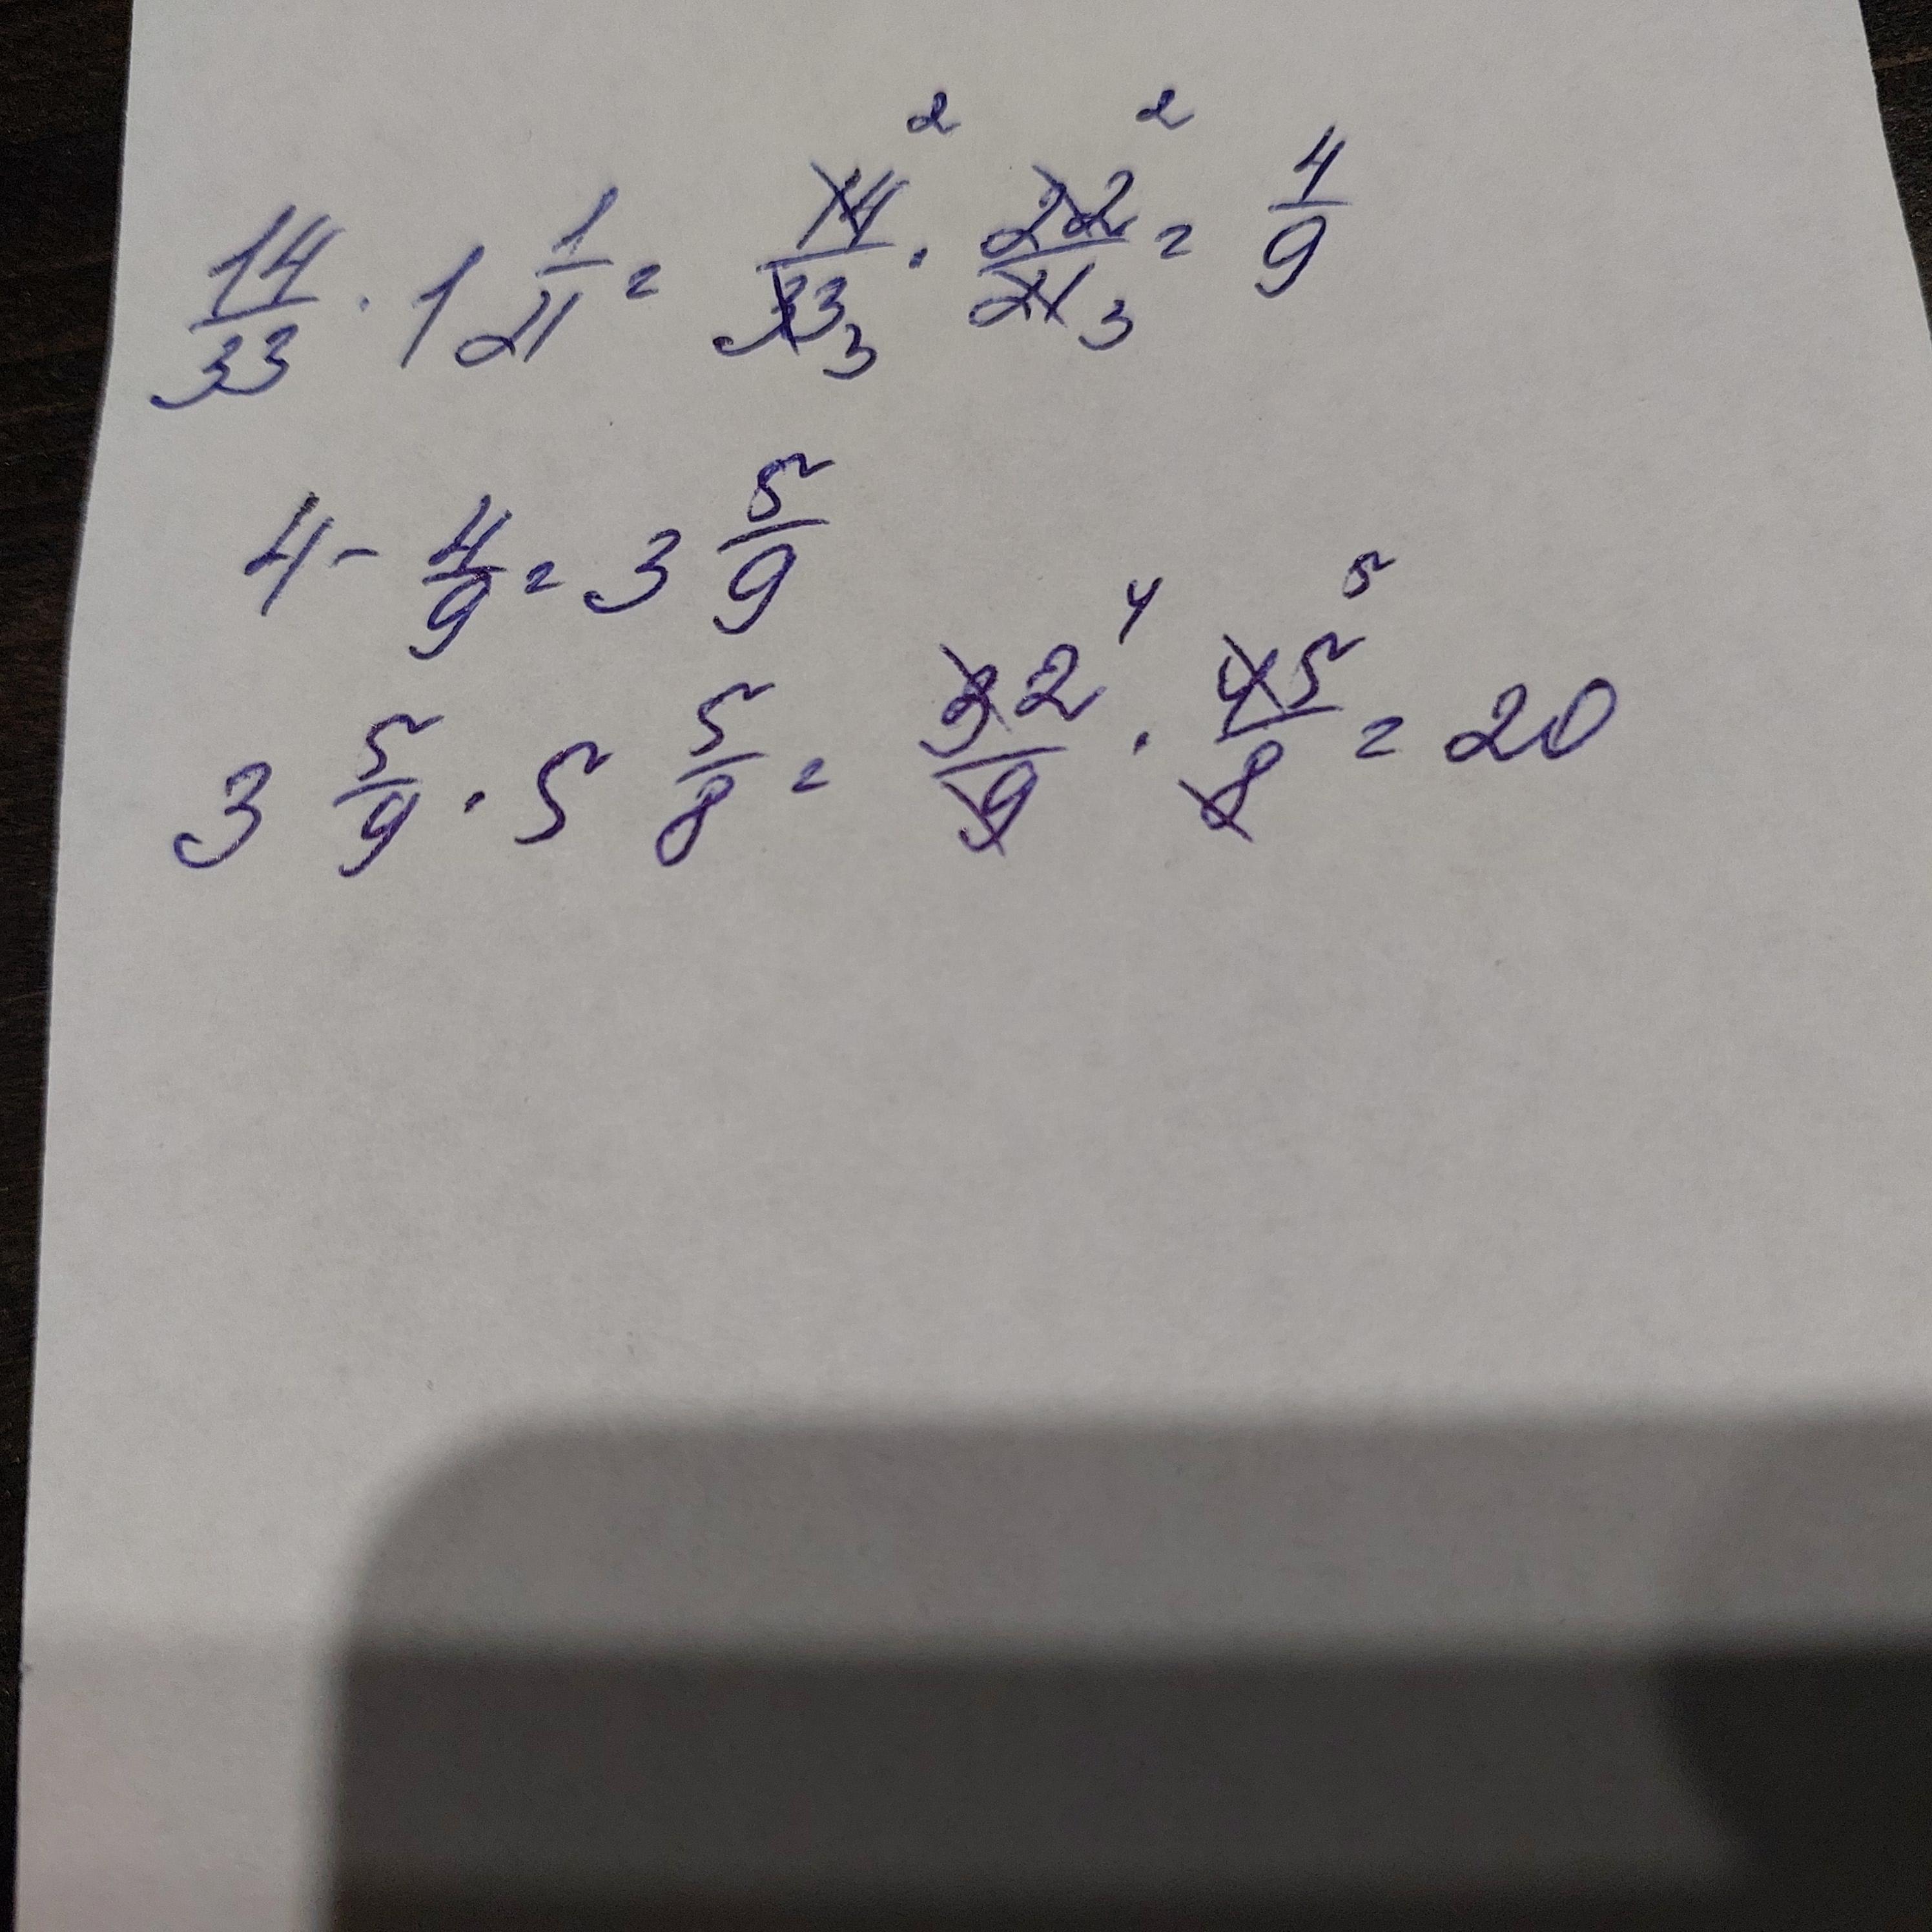 14/33 · 1 1/21 = 14/33 2 3 · 22/21 2 3 = 4/9
4 - 4/9 = 3 5/9
3 5/9 · 5 5/8 = 32/9 4 · 45/8 5 = 20